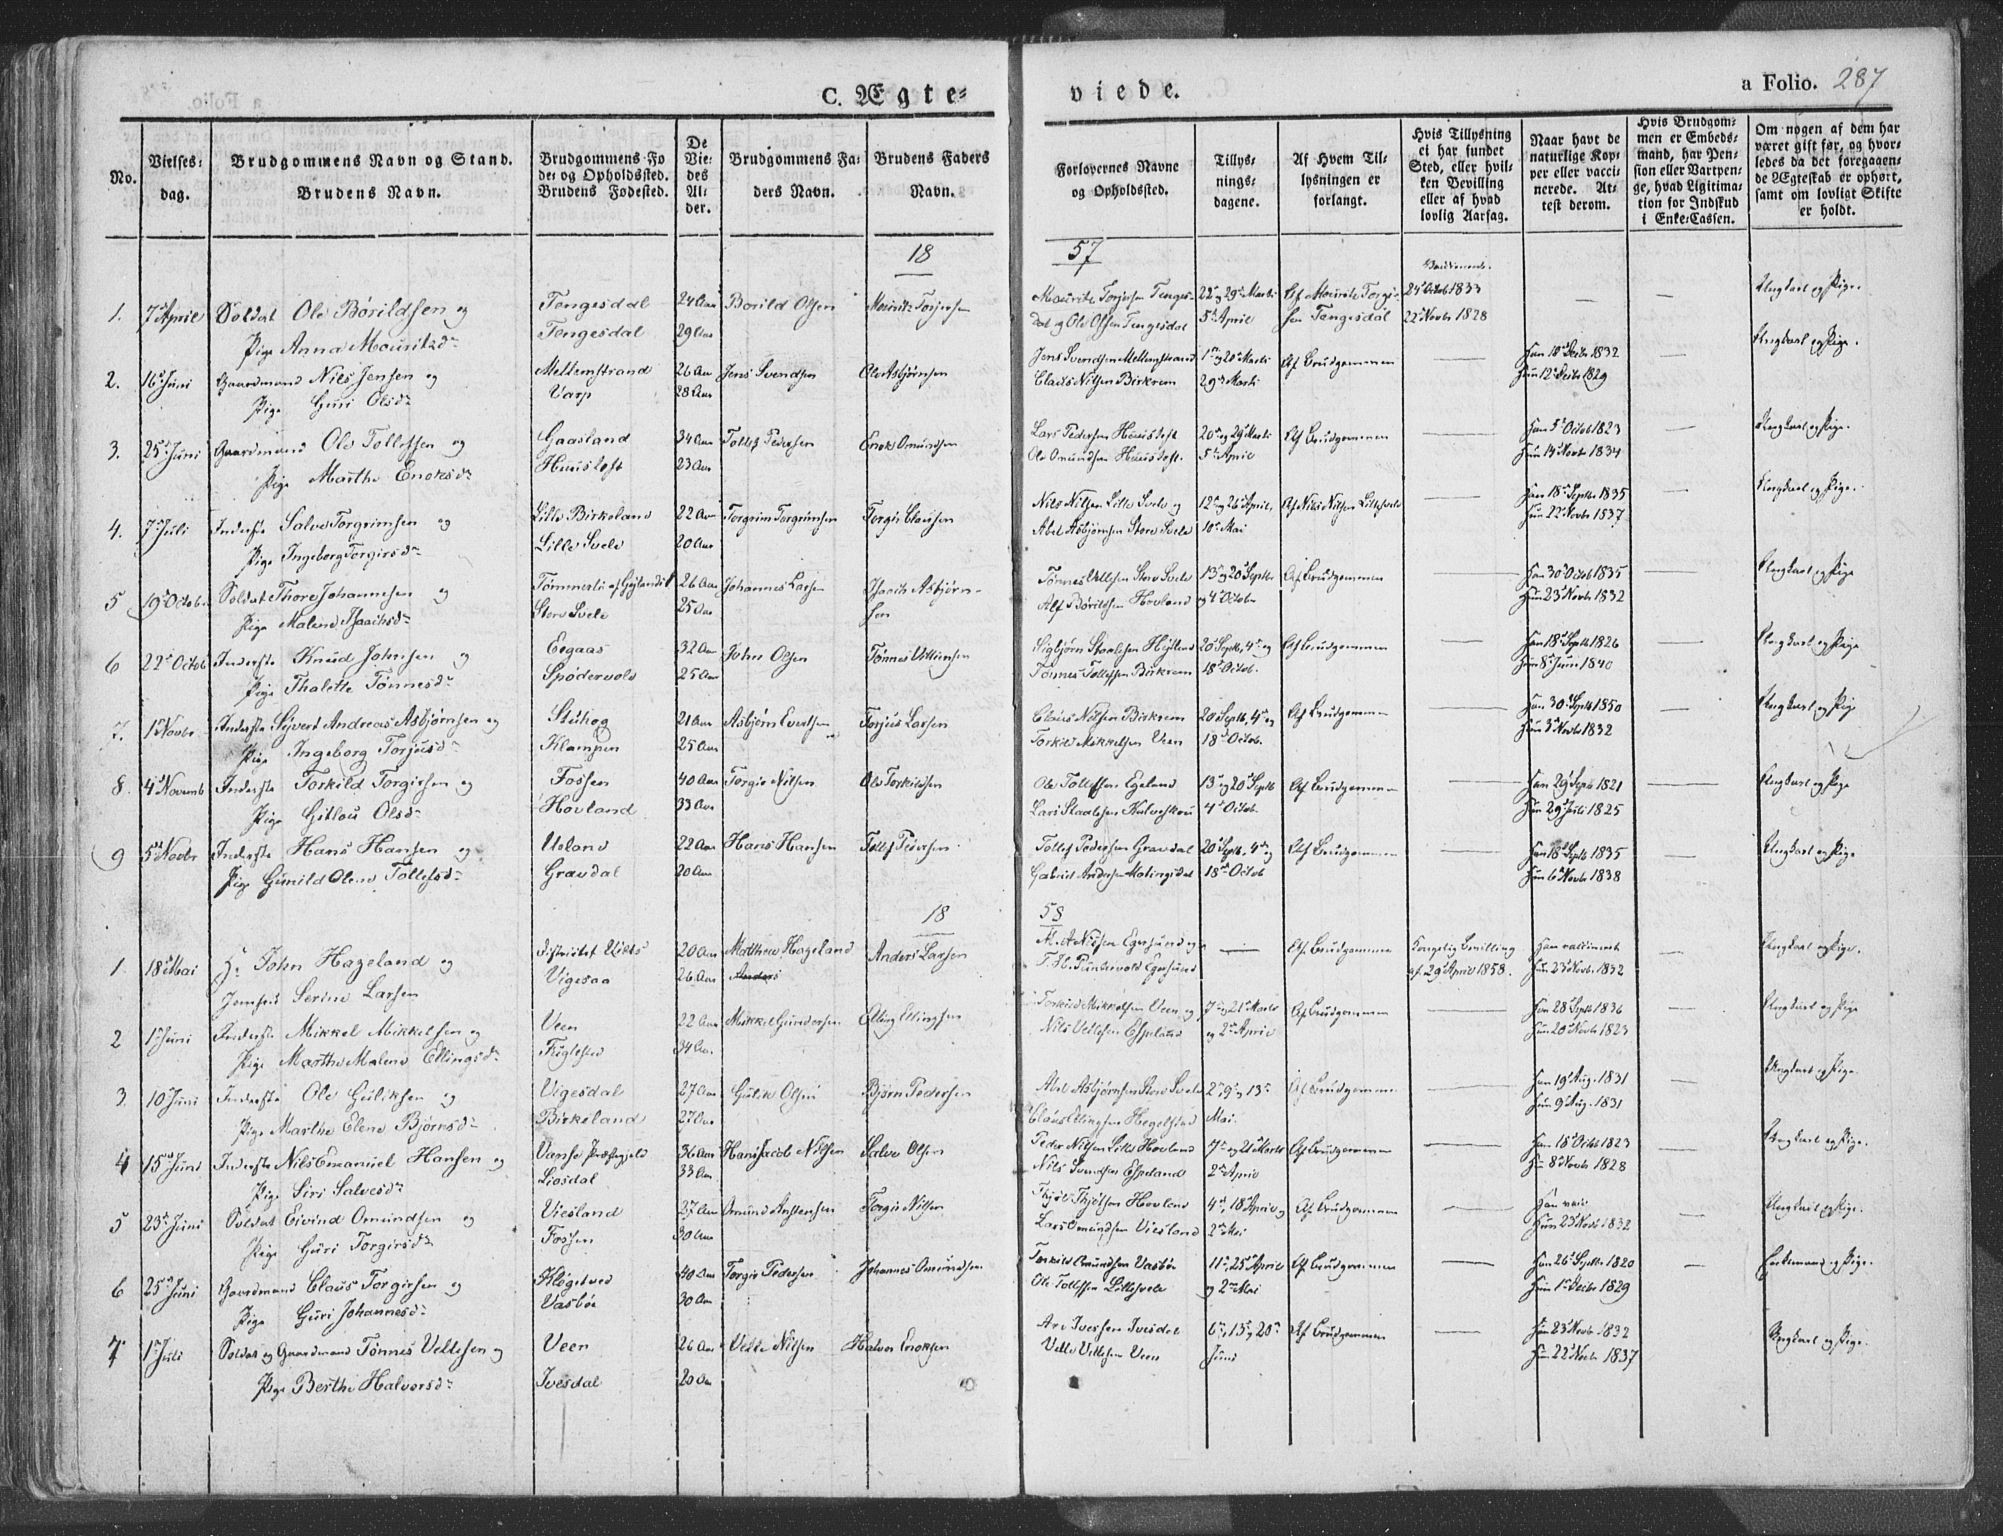 C. Ægte=
viede.
a Folio. 287
No.
Vielses=
dag.
Brudgommens Navn og Stand.
Brudens Navn.
Brudgommens Fø
de= og Opholdssted.
Brudens Fødested.
De
Vie=
des
Al=
der.
Brudgommens Fa=
ders Navn.
Brudens Faders
Navn.
Forlovernes Navne
og Opholdssted.
Tillys=
nings=
dagene.
Af Hvem Til=
lysningen er
forlangt.
Hvis Tillysning
ei har fundet
Sted, eller hvil=
ken Bevilling
eller af hvad
lovlig Aarsag.
Naar havt de
naturlige Kop=
per eller vacci=
nerede. At=
test derom.
Hvis Brudgom=
men er Embeds=
mand, har Pen=
sion eller Vartpen=
ge, hvad Ligitima=
tion for Indskud
i Enke=Cassen.
Om nogen af dem har
været gift før, og hvor=
ledes da det foregaaen=
de Ægteskab er ophørt,
samt om lovligt Skifte
er holdt.
18 57
1. 7 April Soldat Ole Børildsen og Tengesdal 24 Aar Borild Olsen Mouritz Torjersen Mouritz Torjersen Tenges= 22 og 29 Marti Af Mouritz Torger= 24 Octob 1833 Ungkarl og Pige.
Pige Anna Mouritzd Tengesdal 29 Aar dal og Ole Olsen Tengesdal 5 April sen Tengesdal 22 Novbr 1828
2. 16 Juni Gaardmand Nils Jensen og Mellemstrand 26 Aar Jens Svendsen Ole Asbjørnsen Jens Svendsen Mellemstrand 1 og 20 Marti Af Brudgommen Han 10 Decbr 1832 Ungkarl og Pige.
Pige Guri Olsd Varp 28 Aar Claus Nilsen Birkrem 29 Marti Hun 12 Decbr 1829
3. 25 Juni Gaardmand Ole Tollefsen og Gaasland 34 Aar Tollef Pedersen Enok Omundsen Lars Pedersen Heustoft 20 og 29 Marti Af Brudgommen Han 5 Octob 1823 Ungkarl og Pige.
Pige Marthe Enoksd Heustoft 23 Aar Ole Omundsen Heustoft. 5 April Hun 14 Novbr 1834
4. 7 Juli Inderste Salve Torgrimsen og Lille Birkeland 22 Aar Torgrim Torgrimsen Torgir Clausen Nils Nilsen Lille Svele og 12 og 26 April, Af Nils Nilsen Lillesvele Han 18 Septbr 1835 Ungkarl og Pige.
Pige Ingeborg Torgirsd Lille Svele 20 Aar Abel Asbjørnsen Store Svele 10 Mai Hun 22 Novbr 1837
5 19 Octobr Soldat Thore Johannesen og Tømmerli af Gyland 26 Aar Johannes Larsen Isach Asbjørn= Tønnes Vellesen Store Svele 13 og 20 Septbr Af Brudgommen Han 30 Octob 1835 Ungkarl og Pige
Pige Malene Isachsd Store Svele 25 Aar sen Alf Børildsen Hovland og 4 Octobr Hun 23 Novbr 1832
6 22 Octob Inderste Knud Johnsen og Eegaas 32 Aar John Olsen Tønnes Villumsen Sigbjørn Staalesen Hegland 20 Septb, 4 og Af Brudgommen Han 18 Septb 1826 Ungkarl og Pige
Pige Thalette Tønnesd Spødervold 25 Aar Tønnes Tollefsen Birkrem 18 Octob. Hun 8 Juni 1840
7. 1 Novbr Inderste Sivert Andreas Asbjørnsen og Støhog 21 Aar Asbjørn Evertsen Torjus Larsen Claus Nilsen Birkrem 20 Septb, 4 og Af Brudgommen Han 30 Septb 1850 Ungkarl og Pige
Pige Ingeborg Torjusd Klampen 25 Aar Torkild Mikkelsen Veen 18 Octob. Hun 3 Novbr 1832
8. 4 Novemb Inderste Torkild Torgirsen og Fossen 40 Aar Torgir Nilsen Ole Torkildsen Ole Tollefsen Egeland 13 og 20 Septb Af Brudgommen Han 29 Sept 1821 Ungkarl og Pige
Pige Gitlou Olsd Hovland 33 Aar Lars Staalesen 4 Octob. Hun 29 Juli 1825
9 5 Novbr Inderste Hans Hansen og Ueland 22 Aar Hans Hansen Tollef Pedersen Tollef Pedersen Gravdal 20 Septb, 4 og Af Brudgommen Han 18 Septb 1835 Ungkarl og Pige
Pige Gunild Olene Tollefsd Gravdal 20 Aar Gabriel Andersen 18 Octob Hun 6 Novbr 1838
18 58
1 18 Mai Hr John Hageland og 20 Aar Mathew Hageland Anders Larsen Af Brudgommen Kongelig Bevilling Ungkarl og Pige.
Jomfru Serine Larsen Vigesaa 26 Aar Anders af 29 April 1858. Hun 23 Novbr. 1832
2 1 Juni Inderste Mikkel Mikkelsen og Veen 22 Aar Mikkel Gundersen Elling Ellingsen Torkild Mikkelsen Veen og 7 og 21 Marti Af Brudgommen Han 28 Septb 1836 Ungkarl og Pige
Pige Marthe Malene Ellingsd Fuglestad 34 Aar. Nils Vellesen Espeland og 2 April Hun 20 Novbr 1823
3. 10 Juni Inderste Ole Guliksen og Vigesdal 27 Aar Gulik Olsen Bjørn Pedersen Abel Asbjørnsen Store Svele 2, 9 og 13 Af Brudgommen Han 19 Aug. 1831 Ungkarl og Pige.
Pige Marthe Elene Bjørnsd Birkeland 27 Aar Claus Ellingsen Hegelstad Mai. Hun 9 Aug. 1831
4 15 Juni Inderste Nils Emanuel Hansen og Vanse Præstegjeld 36 Aar Hans Jacob Nilsen Salve Olsen Peder Nilsen Lille Hovland 7 og 21 Marti Af Brudgommen Han 18 Octob 1823 Ungkarl og Pige.
Pige Siri Salvesd Liosdal 33 Aar. Nils Svendsen Espeland 2 April Hun 8 Novbr 1828
5 23 Juni Soldat Eivind Omundsen og Viesland 27 Aar Omund Torgir Nilsen Hovland 4, 18 April og Af Brudgommen Ungkarl og Pige.
Pige Guri Torgirsd Fossen 30 Aar Lars Omundsen Viesland 2 Mai Hun 23 Novbr 1832
6 25 Juni Gaardmand Claus Torgirsen og Kløgetved 40 Aar Torgir Pedersen Johannes Omundsen Torkild Omundsen Vasbøe 11, 25 April Af Brudgommen Han 26 Septbr 1820 Enkemand og Pige.
Pige Guri Johannesd Vasbøe 30 Aar Ole Tollefsen Lillesvele og 2 Mai Hun 1 Decbr 1829
7 1 Juli Soldat og Gaardmand Tønnes Vellesen og Veen 26 Aar Velle Nilsen Halvor Enoksen Are Iversen Ivesdal 6, 13, 20 Af Brudgommen Han 23 Novbr 1832 Ungkarl og Pige.
Pige Berthe Halvorsd Ivesdal 20 Aar Velle Vellesen Veen Juni Hun 22 Novbr 1837